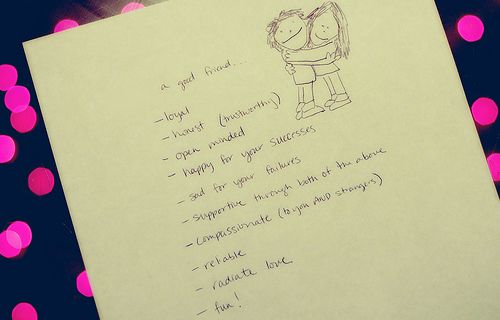 a good friend...
- loyal
- honest (trustworthy)
- open minded
- happy for your successes
- sad for your failures
- supportive through both of the above
- compassionate (to you AND strangers)
- reliable
- radiate love
- fun!